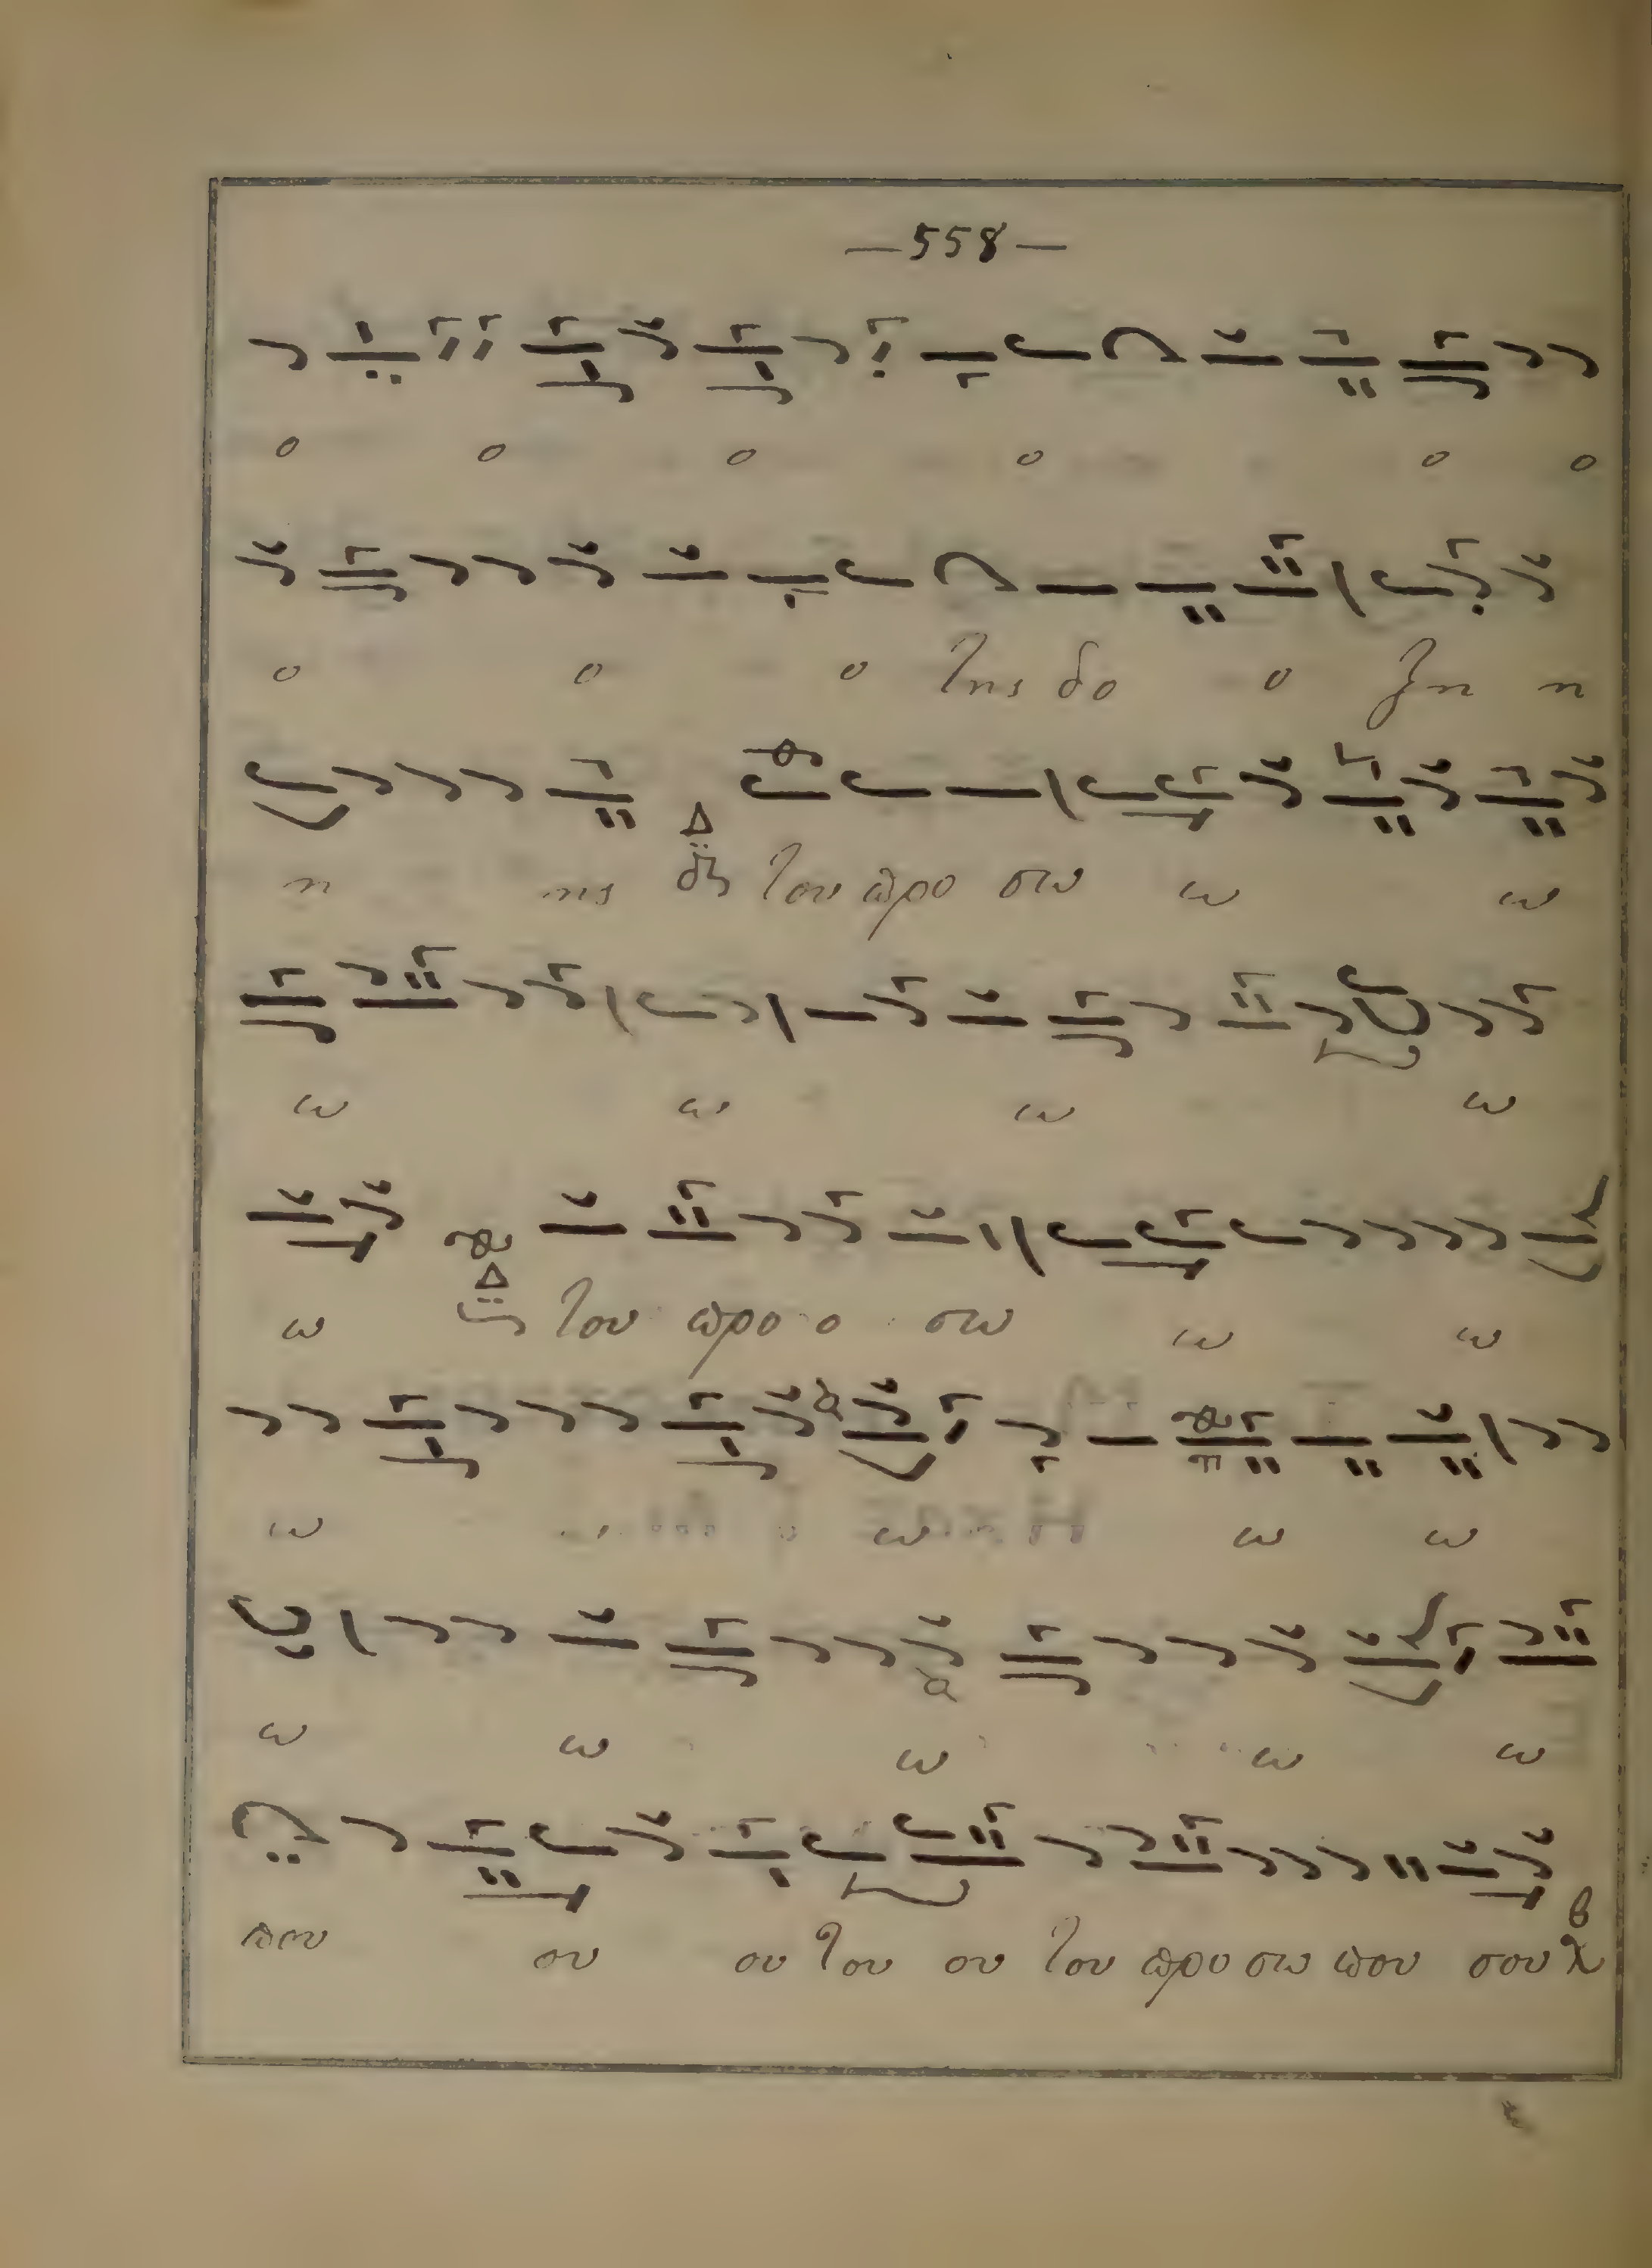 —558—
ο ο ο ο ο ο
ο ο ο της δο ο ξη η
η ης του προ σω ω ω
ω ω ω ω
ω του προ ο σω ω ω
ω ω ω ω
ω ω ω ω ω
που ου ου του ου του προ σω που σου